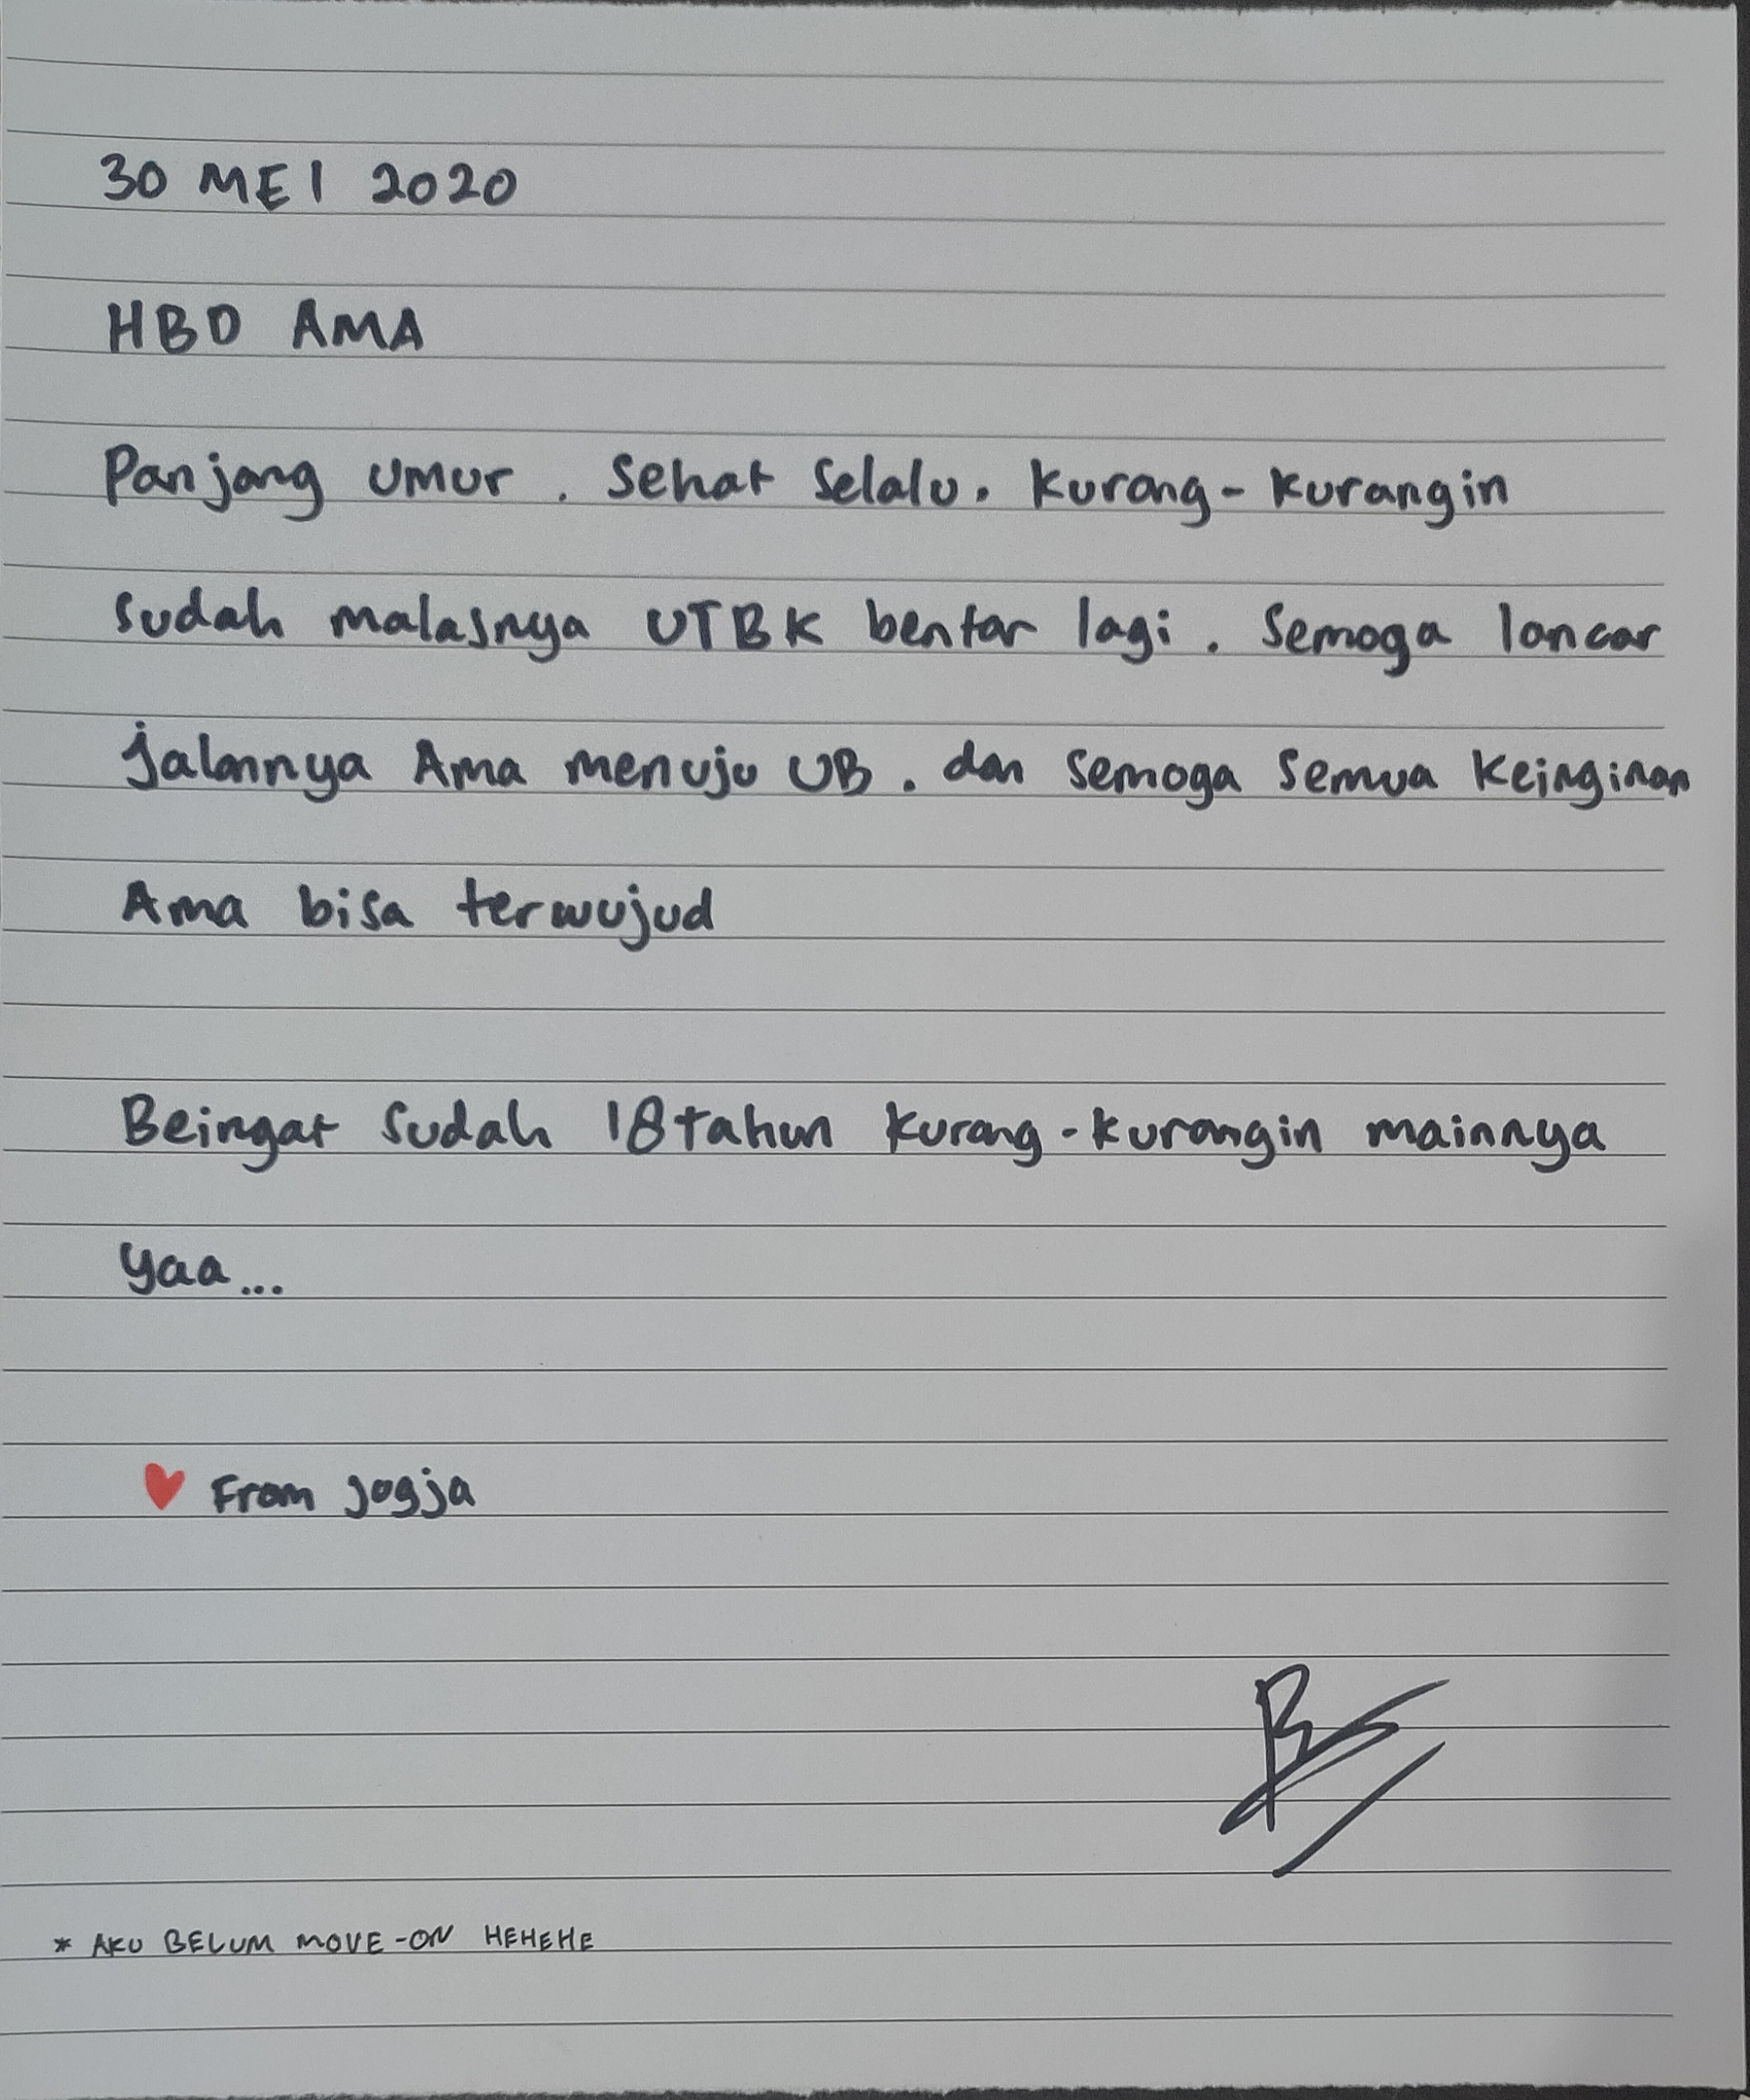 30 MEI 2020
HBD AMA
Panjang umur. Sehat Selalu. Kurang-kurangin
sudah malasnya UTBK bentar lagi. Semoga lancar
jalannya Ama menuju UB. dan semoga semua keinginan
Ama bisa terwujud
Beingat sudah 18 tahun kurang-kurangin mainnya
yaa...
From Jogja
* AKU BELUM MOVE-ON HEHEHE